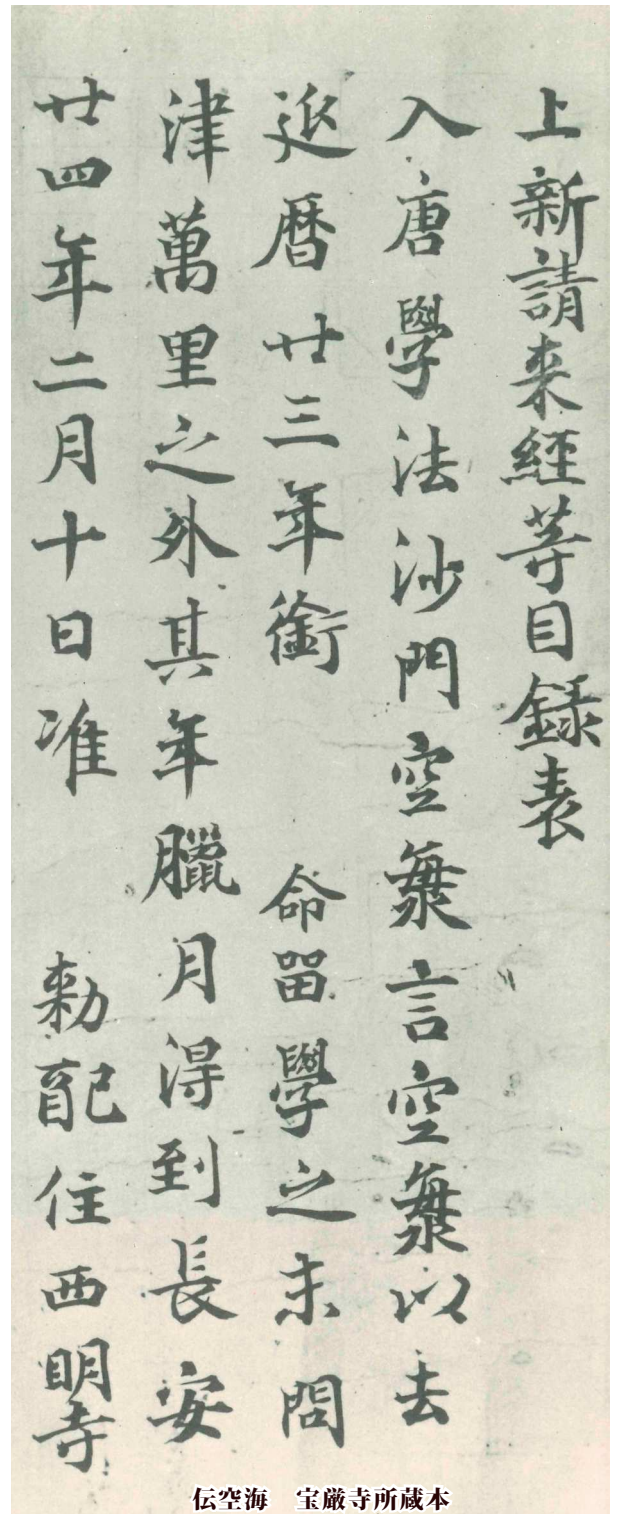 上新請来經等目録表
入唐學法沙門空海言空海以去
延暦廿三年銜　命留學之末問
津萬里之外其年臘月得到長安
廿四年二月十日准　勅配住西明寺
伝空海　宝厳寺所蔵本